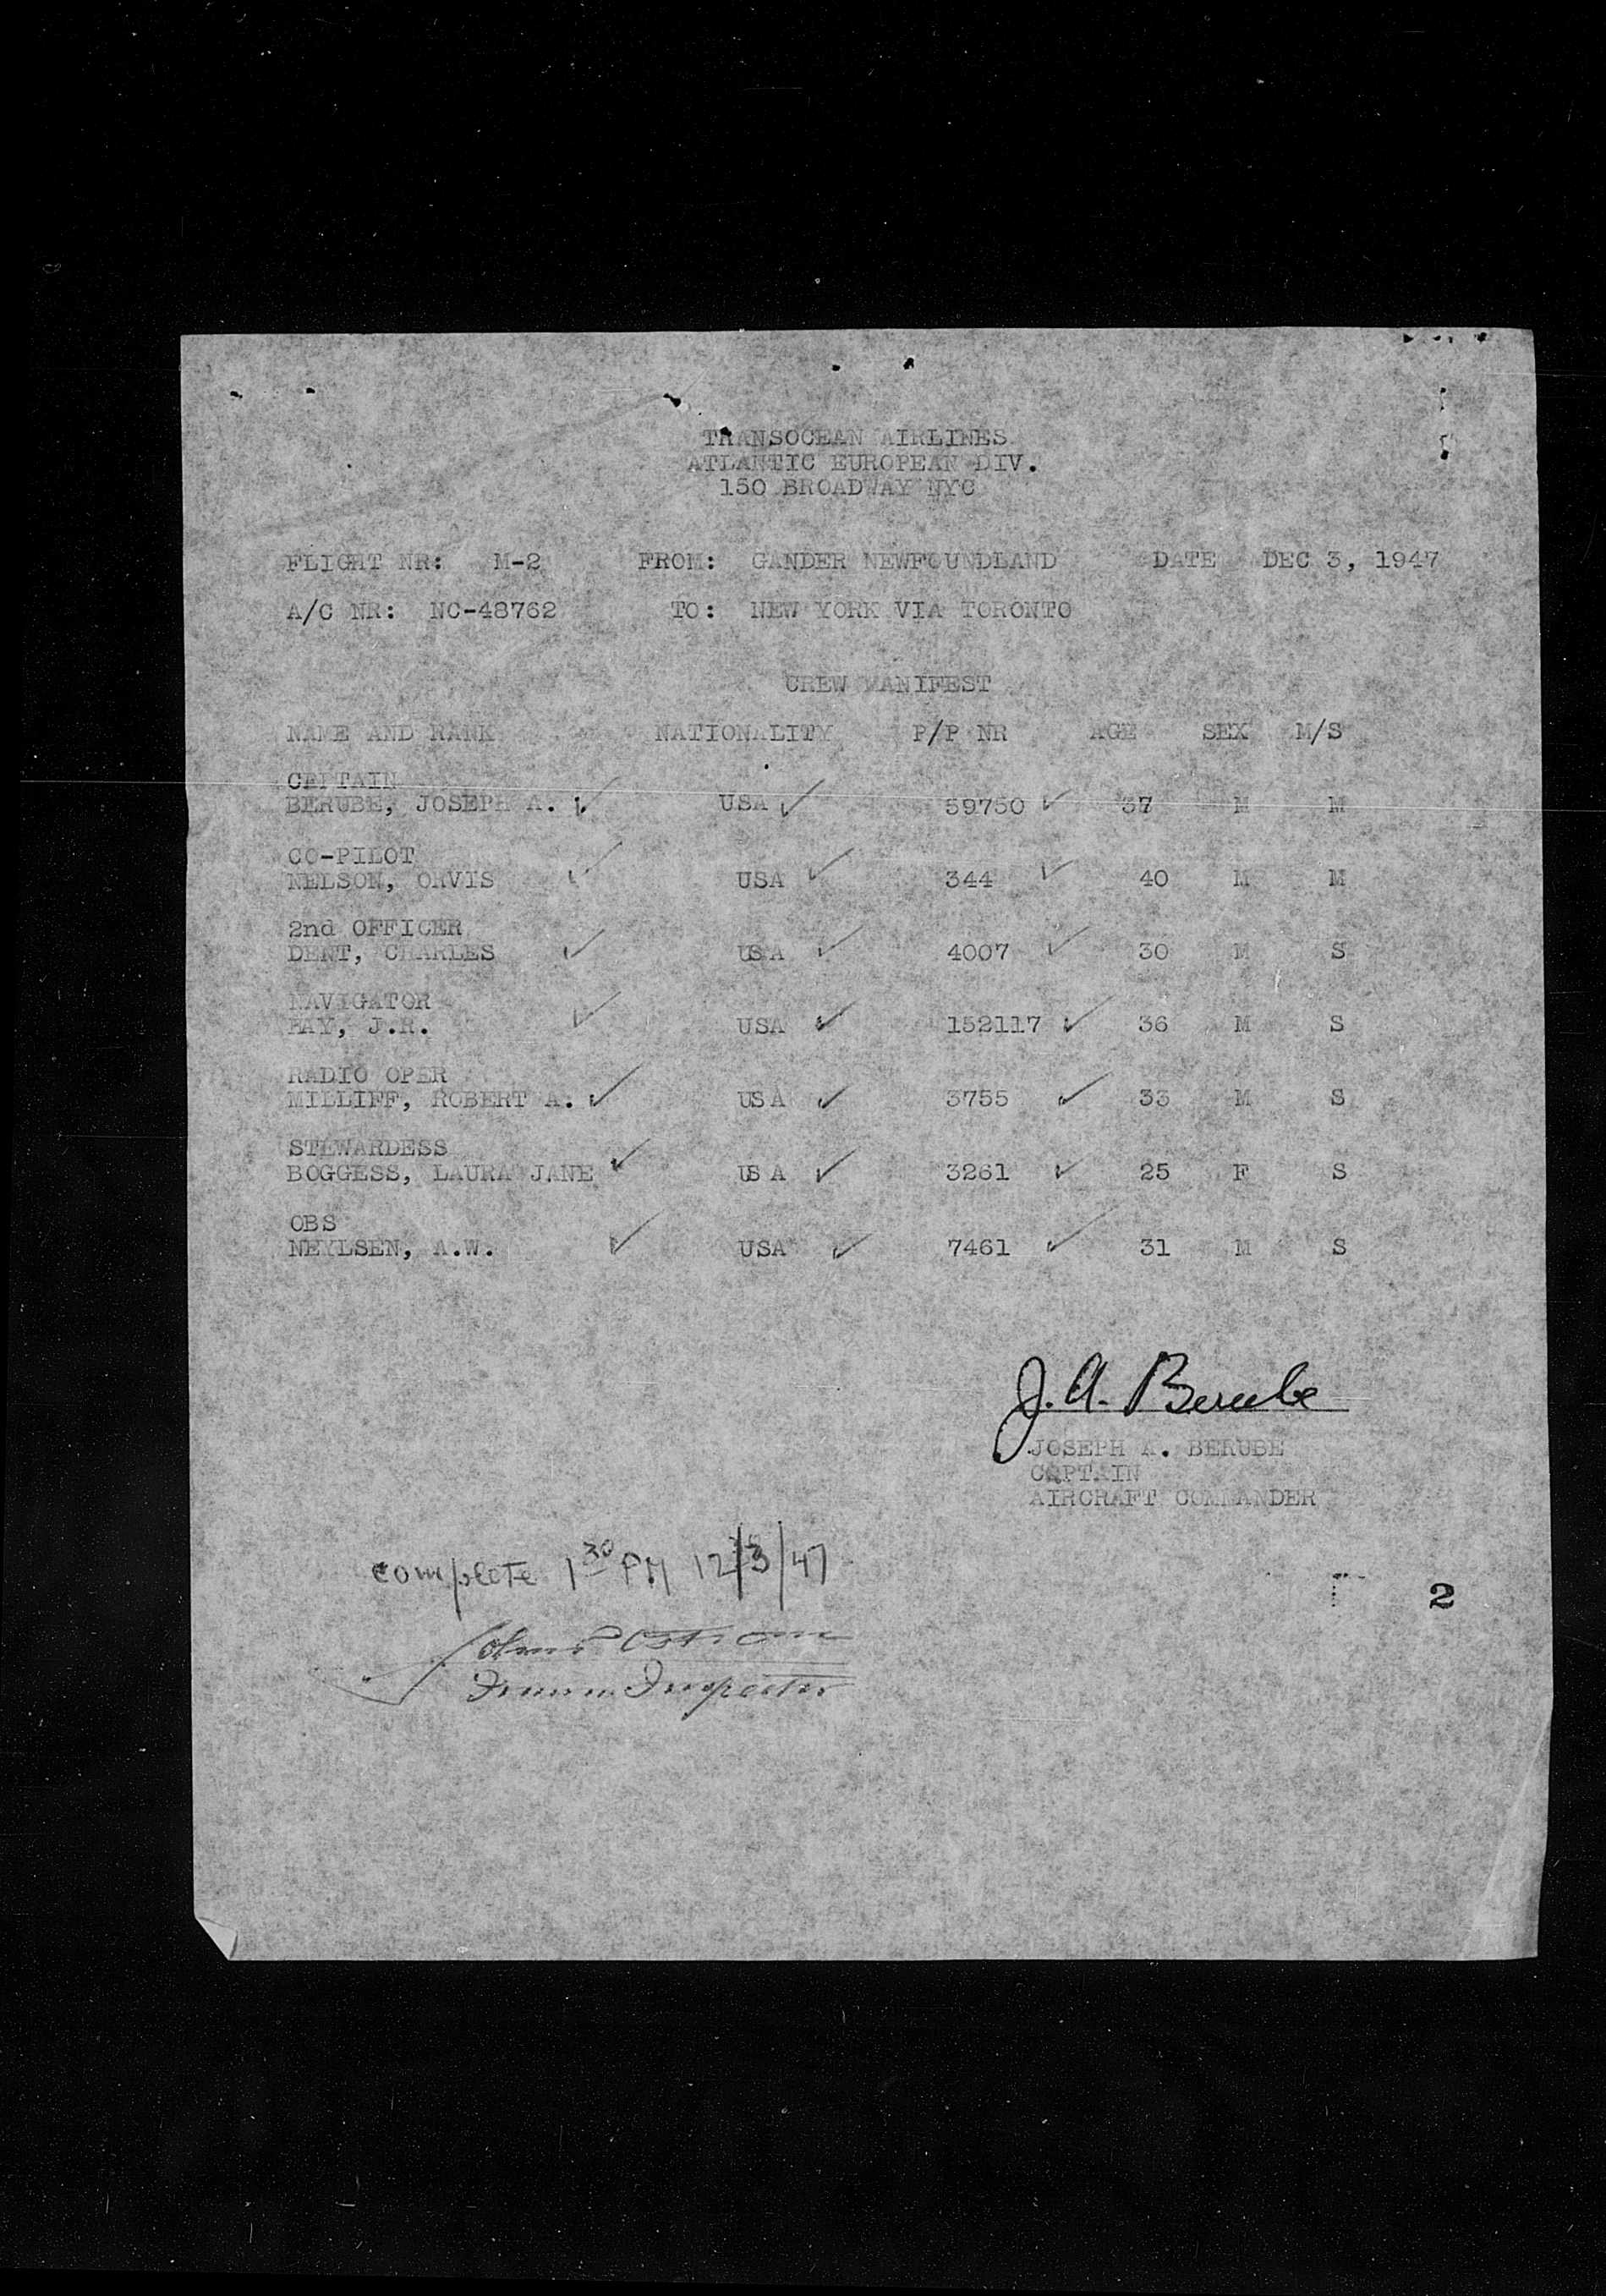 TRANSOCEAN AIRLINES
ATLANTIC EUROPEAN DIV.
150 BROADWAY NYC
FLIGHT NR: M-2 FROM: GANDER NEWFOUNDLAND DATE DEC 3, 1947
A/C NR: NC-48762 TO: NEW YORK VIA TORONTO
CREW MANIFEST
NAME AND RANK NATIONALITY P/P NR AGE SEX M/S
CPITAIN
BERUBE, JOSEPH A. USA 59750 37 M M
CO-PILOT
NELSON, ORVIS USA 344 40 M M
2nd OFFICER
DENT, CHARLES USA 4007 30 M S
NAVIGATOR
J.R. USA 152117 36 M S
RADIO OPER
MILLIFF, ROBERT A. USA 3755 33 M S
STEWARDESS
BOGGESS, LAURA JANE USA 3261 25 F S
OBS
NEYLSEN, A.W. USA 7461 31 M S
J. A. Berube
JOSEPH A. BERUBE
CAPTAIN
AIRCRAFT COMMANDER
complete 1 30 PM 12/3/47
2
Inspector